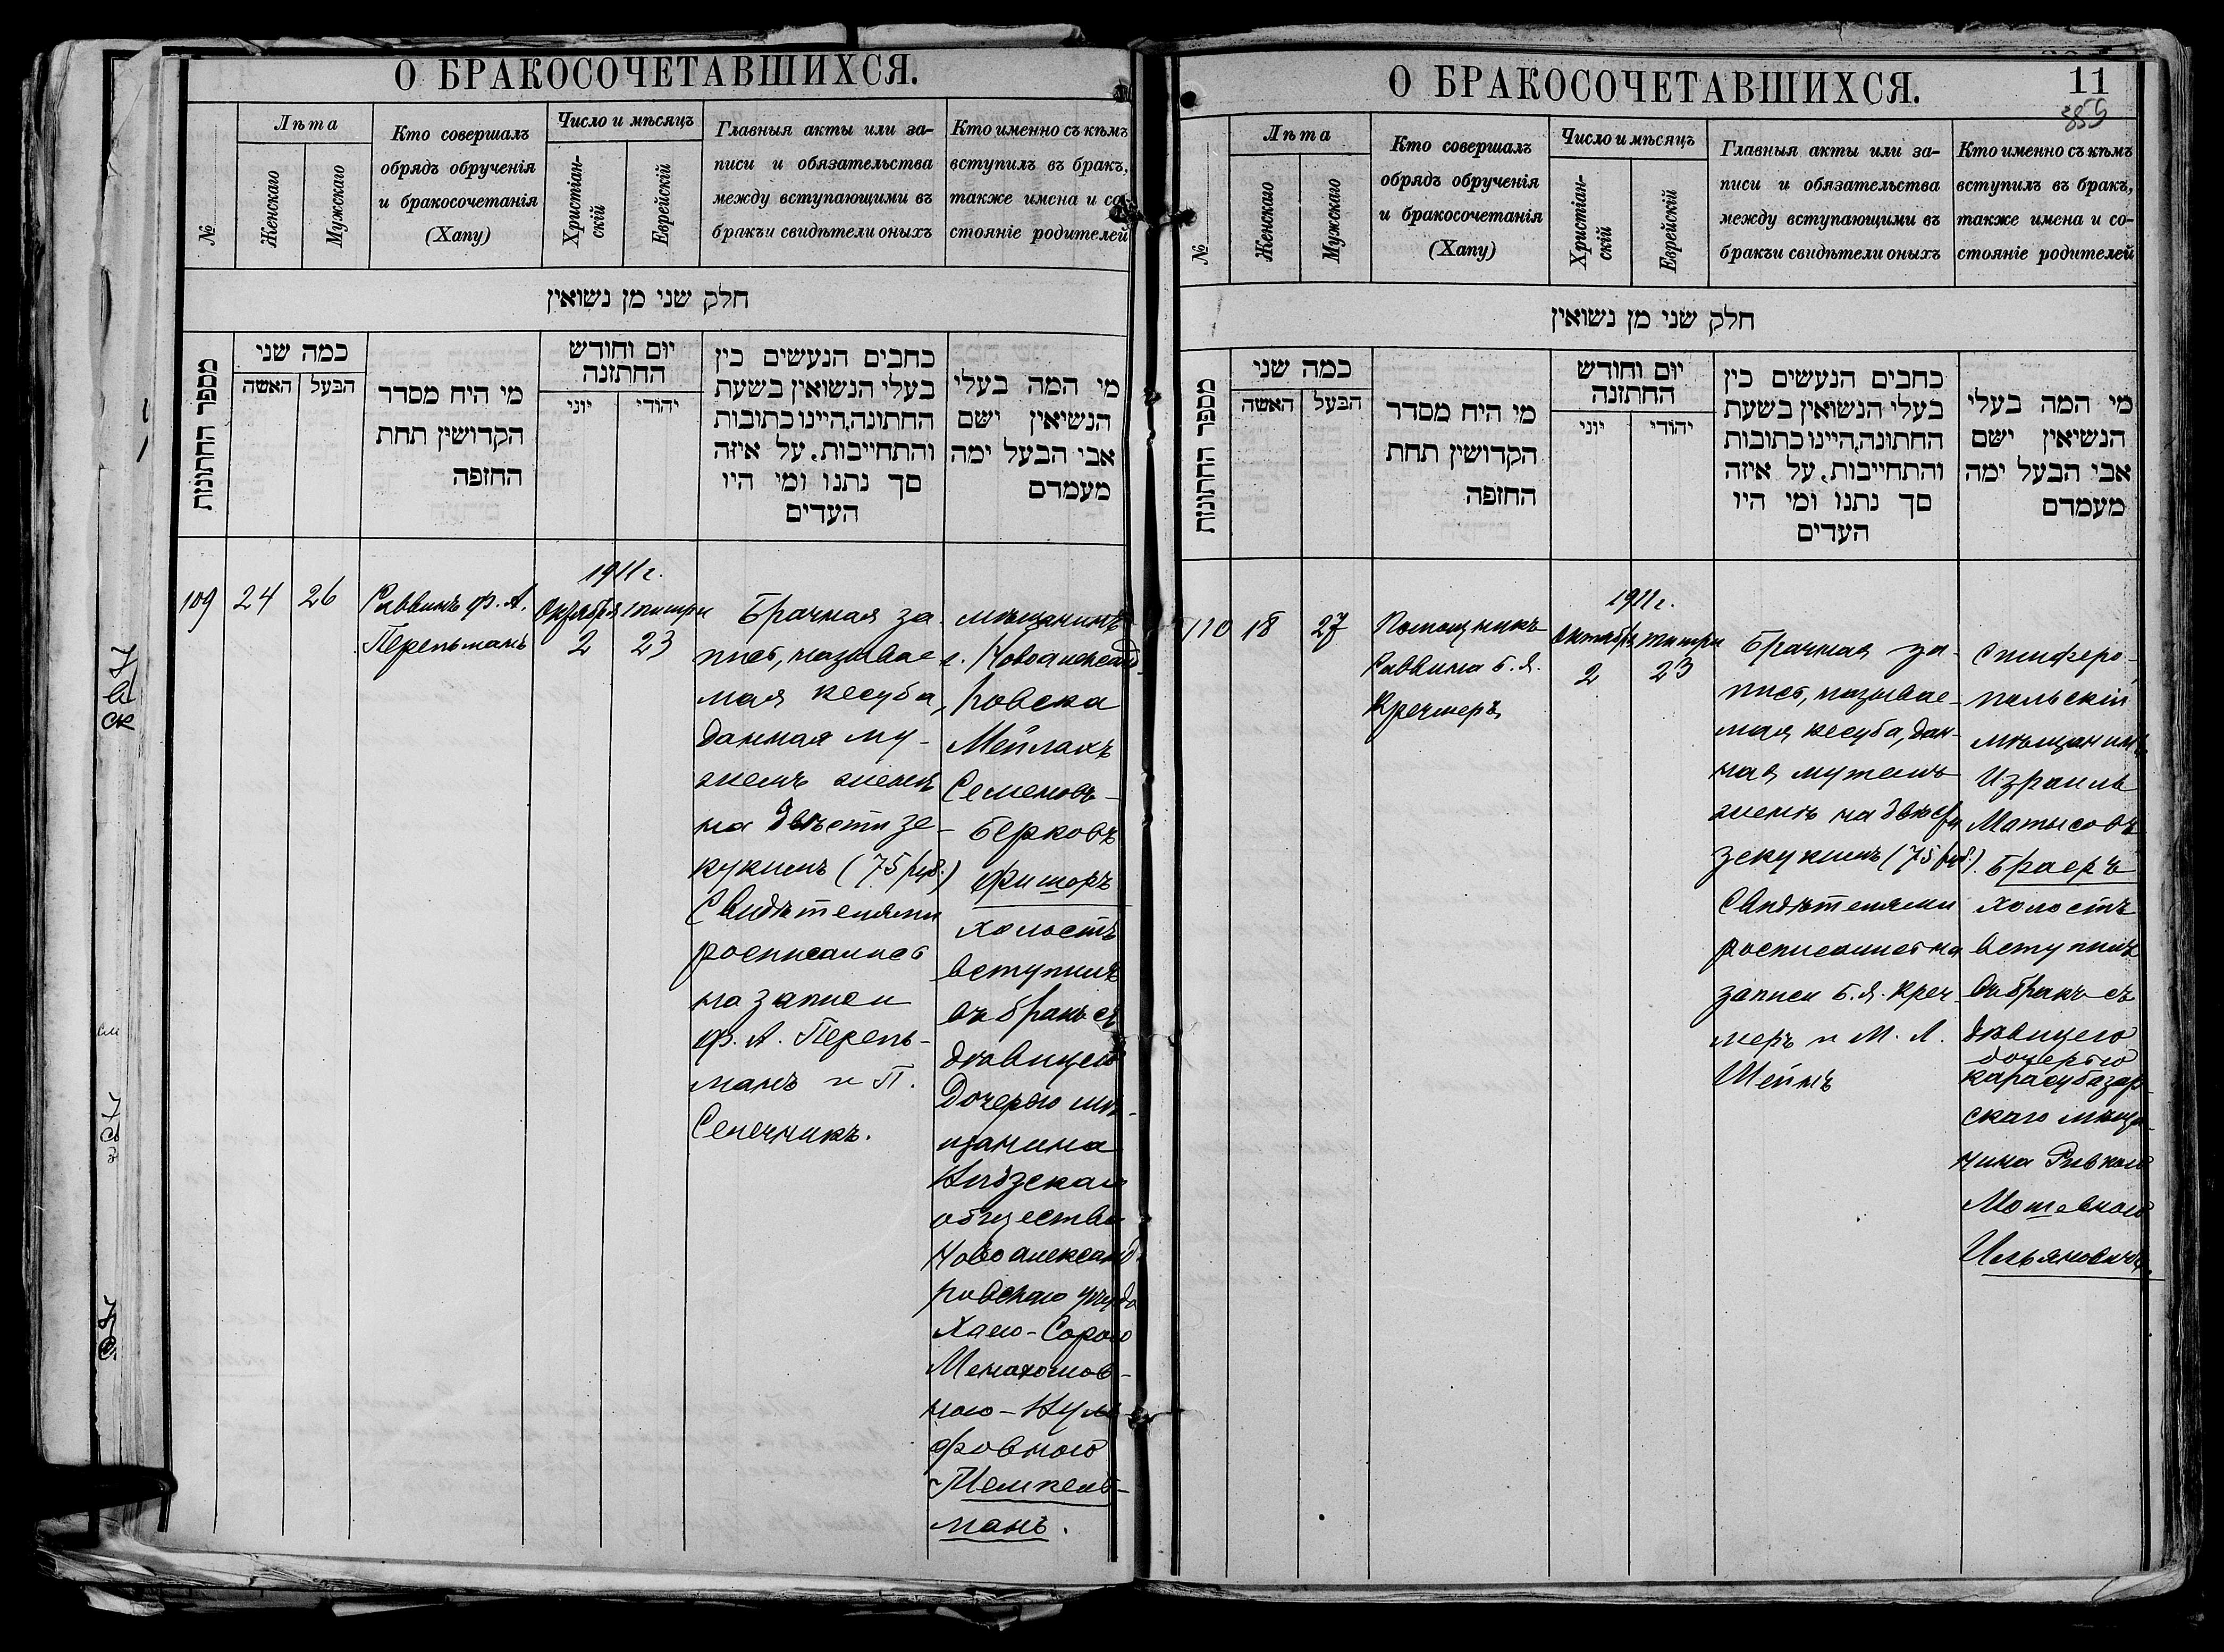 О БРАКОСОЧЕТАВШИХСЯ.
№
Лѣта
Женскаго
Мужскаго
Кто совершалъ
обрядъ обрученія
и бракосочетанія
(Хапу)
Число и мѣсяцъ
Христіан-
скій
Еврейскій
Главныя акты или за-
писи и обязательства
между вступающими въ
бракъи свидѣтели оныхъ
Кто именно съ кѣмъ
вступилъ въ бракъ,
также имена и со-
стояніе родителей
חלק שני מן נשואין
מספר החתונות
כמה שני
האשה
הבעל
מי היח מסדר
הקדושין תחת
החופה
יום וחודש
החתונה
יוני
יהודי
כתבים הנעשים בין
בעלי הנשואין בשעת
החתונה,היינו כתובות
והתחייבות, על איזה
סך נתנו ומי היו
העדים
מי המה בעלי
הנשיאין ישם
אבי הבעל ימה
מעמדם
109
24
26
Раввинъ Ф. А.
Перельманъ
1911 г.
Октября
2
тишри
23
Брачная за-
пись, называе-
мая кесуба,
данная му-
жемъ женѣ
на двѣсти зе-
кукимъ (75 руб.)
Свидѣтелями
росписались
на записи
Ф. А. Перель-
манъ и П.
Сенечникъ.
мѣщанинъ
г. Новоалександ-
ровска
Мейлахъ
Семеновъ-
Берковъ
Фишоръ
холостъ
вступилъ
въ бракъ съ
дѣвицею
дочерью мѣ-
щанина
общества
Новоалександ-
ровскаго уѣзда
Хаею-Сорою
Менахомов-
ною-
Темкель-
манъ.
О БРАКОСОЧЕТАВШИХСЯ.
11
№
Лѣта
Женскаго
Мужскаго
Кто совершалъ
обрядъ обрученія
и бракосочетанія
(Хапу)
Число и мѣсяцъ
Христіан-
скій
Еврейскій
Главныя акты или за-
писи и обязательства
между вступающими въ
бракъи свидѣтели оныхъ
Кто именно съ кѣмъ
вступилъ въ бракъ,
также имена и со-
стояніе родителей
חלק שני מן נשואין
מספר החתונות
כמה שני
האשה
הבעל
מי היח מסדר
הקדושין תחת
החופה
יום וחודש
החתונה
יוני
יהודי
כתבים הנעשים בין
בעלי הנשואין בשעת
החתונה,היינו כתובות
והתחייבות, על איזה
סך נתנו ומי היו
העדים
מי המה בעלי
הנשיאין ישם
אבי הבעל ימה
מעמדם
110
18
27
Помощникъ
Раввина Б. Я.
Кречмеръ
1911 г.
Октябрь
2
тишри
23
Брачная за-
пись, называе-
мая кесуба, дан-
ная мужемъ
женѣ на двѣсти
зекукимъ (75 руб.)
Свидѣтелями
росписались на
записи Б. Я. Креч-
меръ и М. Л.
Шейнъ
Симферо-
польскій
мѣщанинъ
Израиль
Матысовъ
Браеръ
холостъ
вступилъ
въ бракъ съ
дѣвицею
дочерью
карасубазар-
скаго мѣща-
нина Ривкою
Мошевною
Ильяновичъ.